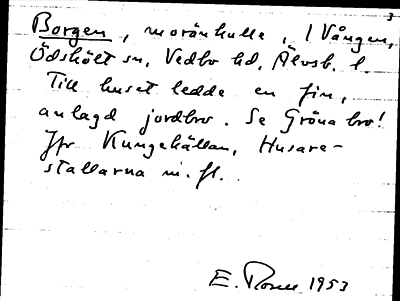 3
Borgen, moränkulle, i Vången,
Ödskölt sn, Vedbo hd, Älvsb. l.
Till huset ledde en fin,
anlagd jordbro. Se Gröna bro!
Jfr Kungskällan, Husare-
stallarna m. fl.
E. 1953